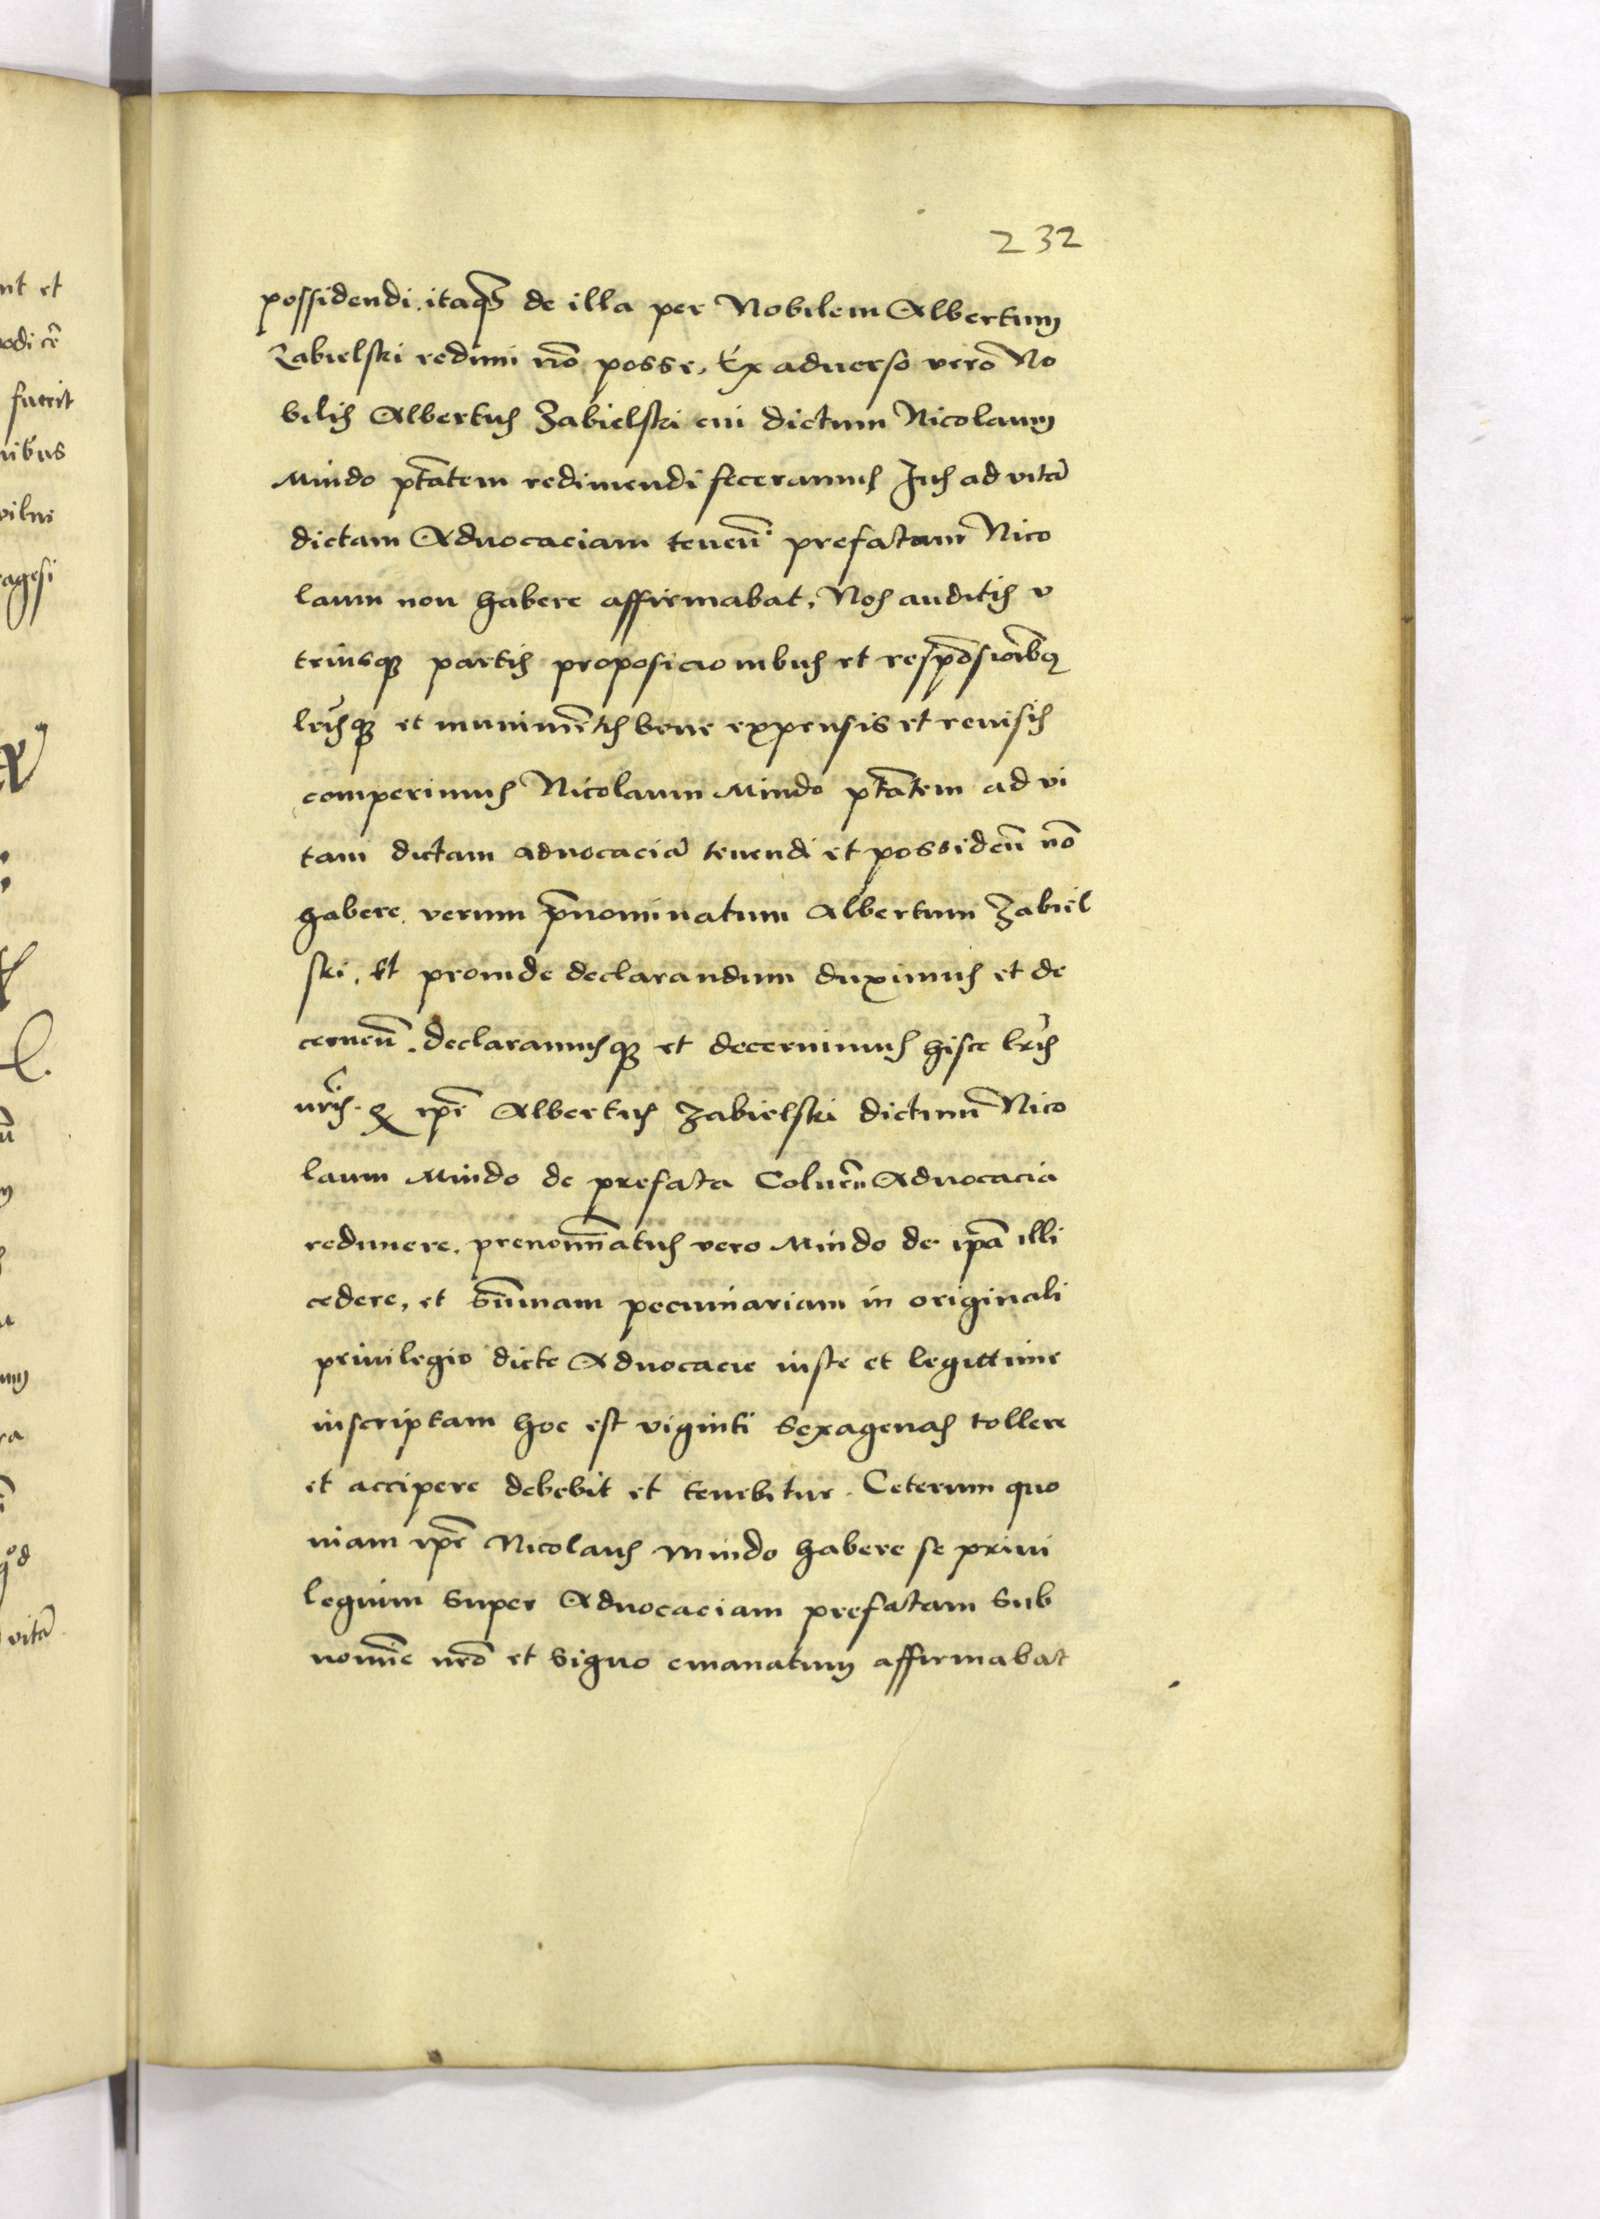 232
possidendi. itaqȝ de illa per Nobilem Albertum
Zabielski redimi nō posse, Ex aduerso vero No
bilis Albertus Zabielski cui dictum Nicolaum
Mindo ptātem redimendi feceramus Jus ad vitā
dictam Aduocaciam teneñ prefatam Nico
laum non habere affirmabat, Nos auditis v
triusqȝ partis proposicionibus et respōsioibȝ
lrīsqȝ et munimētis bene expensis et reuisis
comperimus Nicolaum Mindo ptātem ad vi
tam dictam aduocaciā tenendi et possideñ nō
habere, verum p̄nominatum Albertum Zabiel
ski, Et proinde declarandum duximus et de
cerneñ. declaramusqȝ et decernimus hisce lrīs
nrīs. qȝ ip̄e Albertus Zabielski dictum Nico
laum Mindo de prefata Colneñ Aduocacia
redimere, prenom̄natus vero Mindo de ip̄a illi
cedere, et sūmam pecuniariam in originali
priuilegio dicte Aduocacie iuste et legittime
inscriptam hoc est viginti sexagenas tollere
et accipere debebit et tenebitur. Ceterum quo
niam ip̄e Nicolaus Mindo habere se priui
legium super Aduocaciam prefatam sub
nom̄e nrō et signo emanatum affirmabat
nt et
fuerit
nibus
agesi
vitā